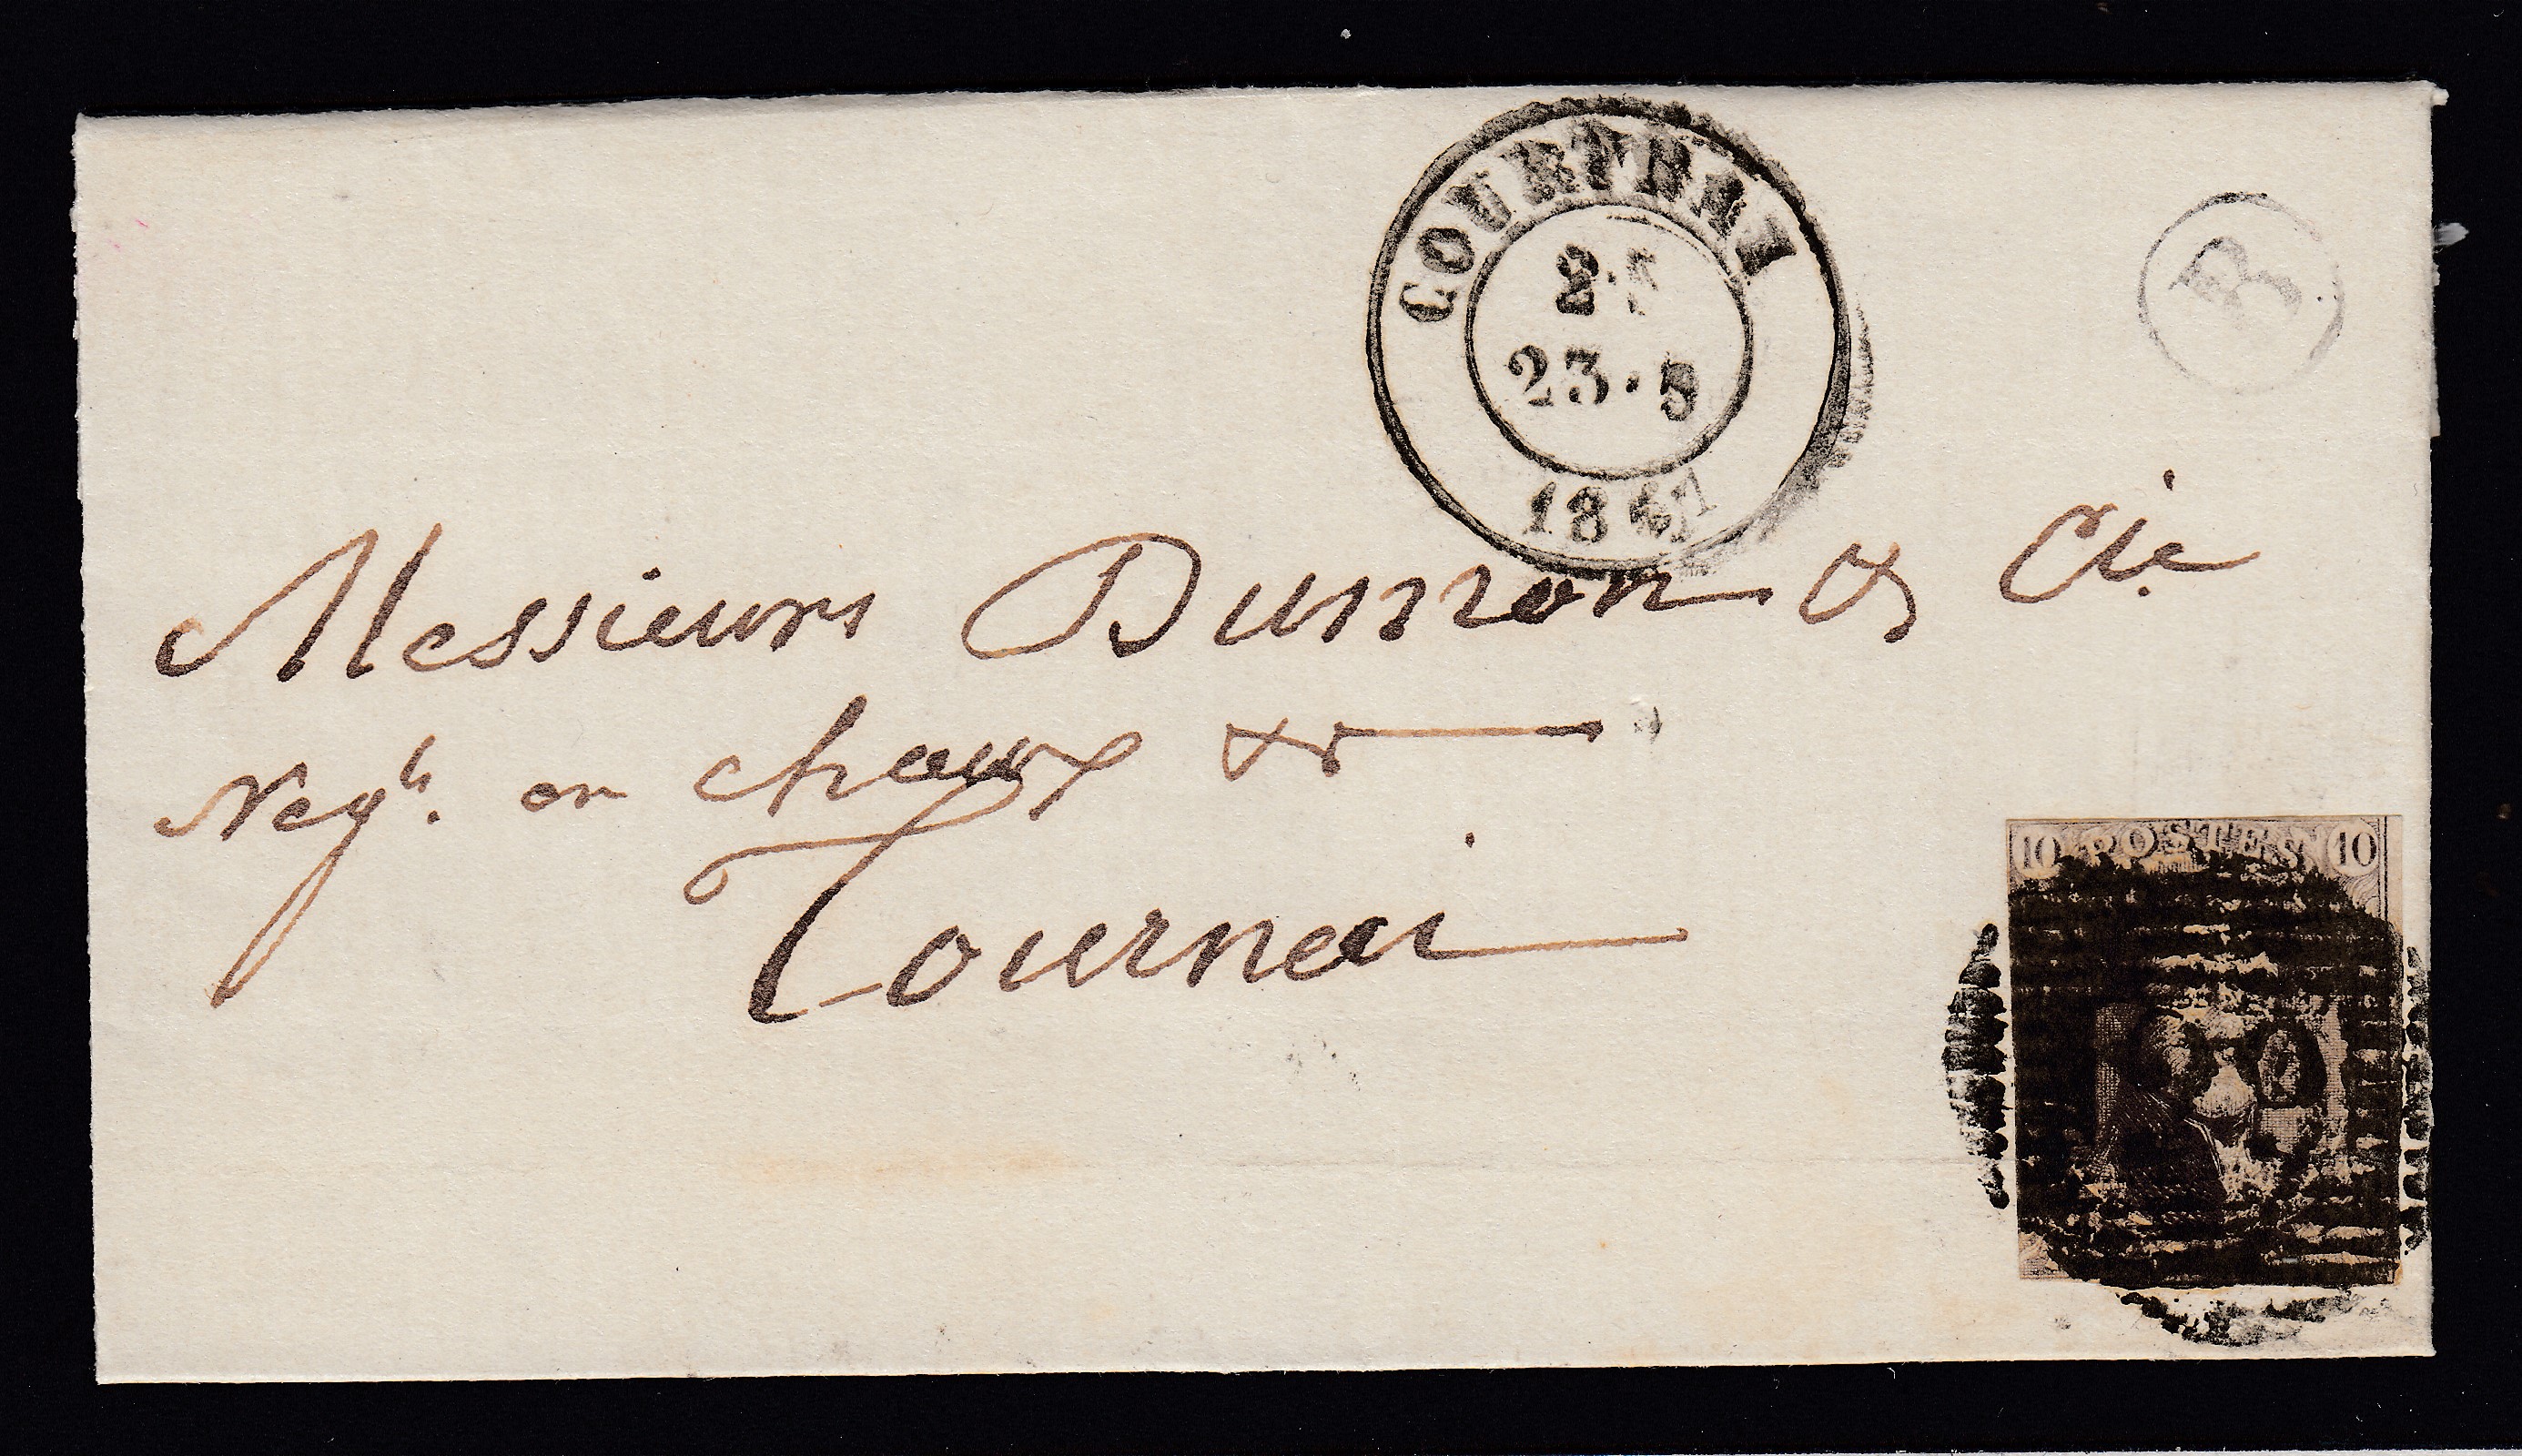 COURTRAI
23 · 8
186
B
Messieurs Dumon & Cie
Negts. en chaux &c
Tournai
10 POSTES 10